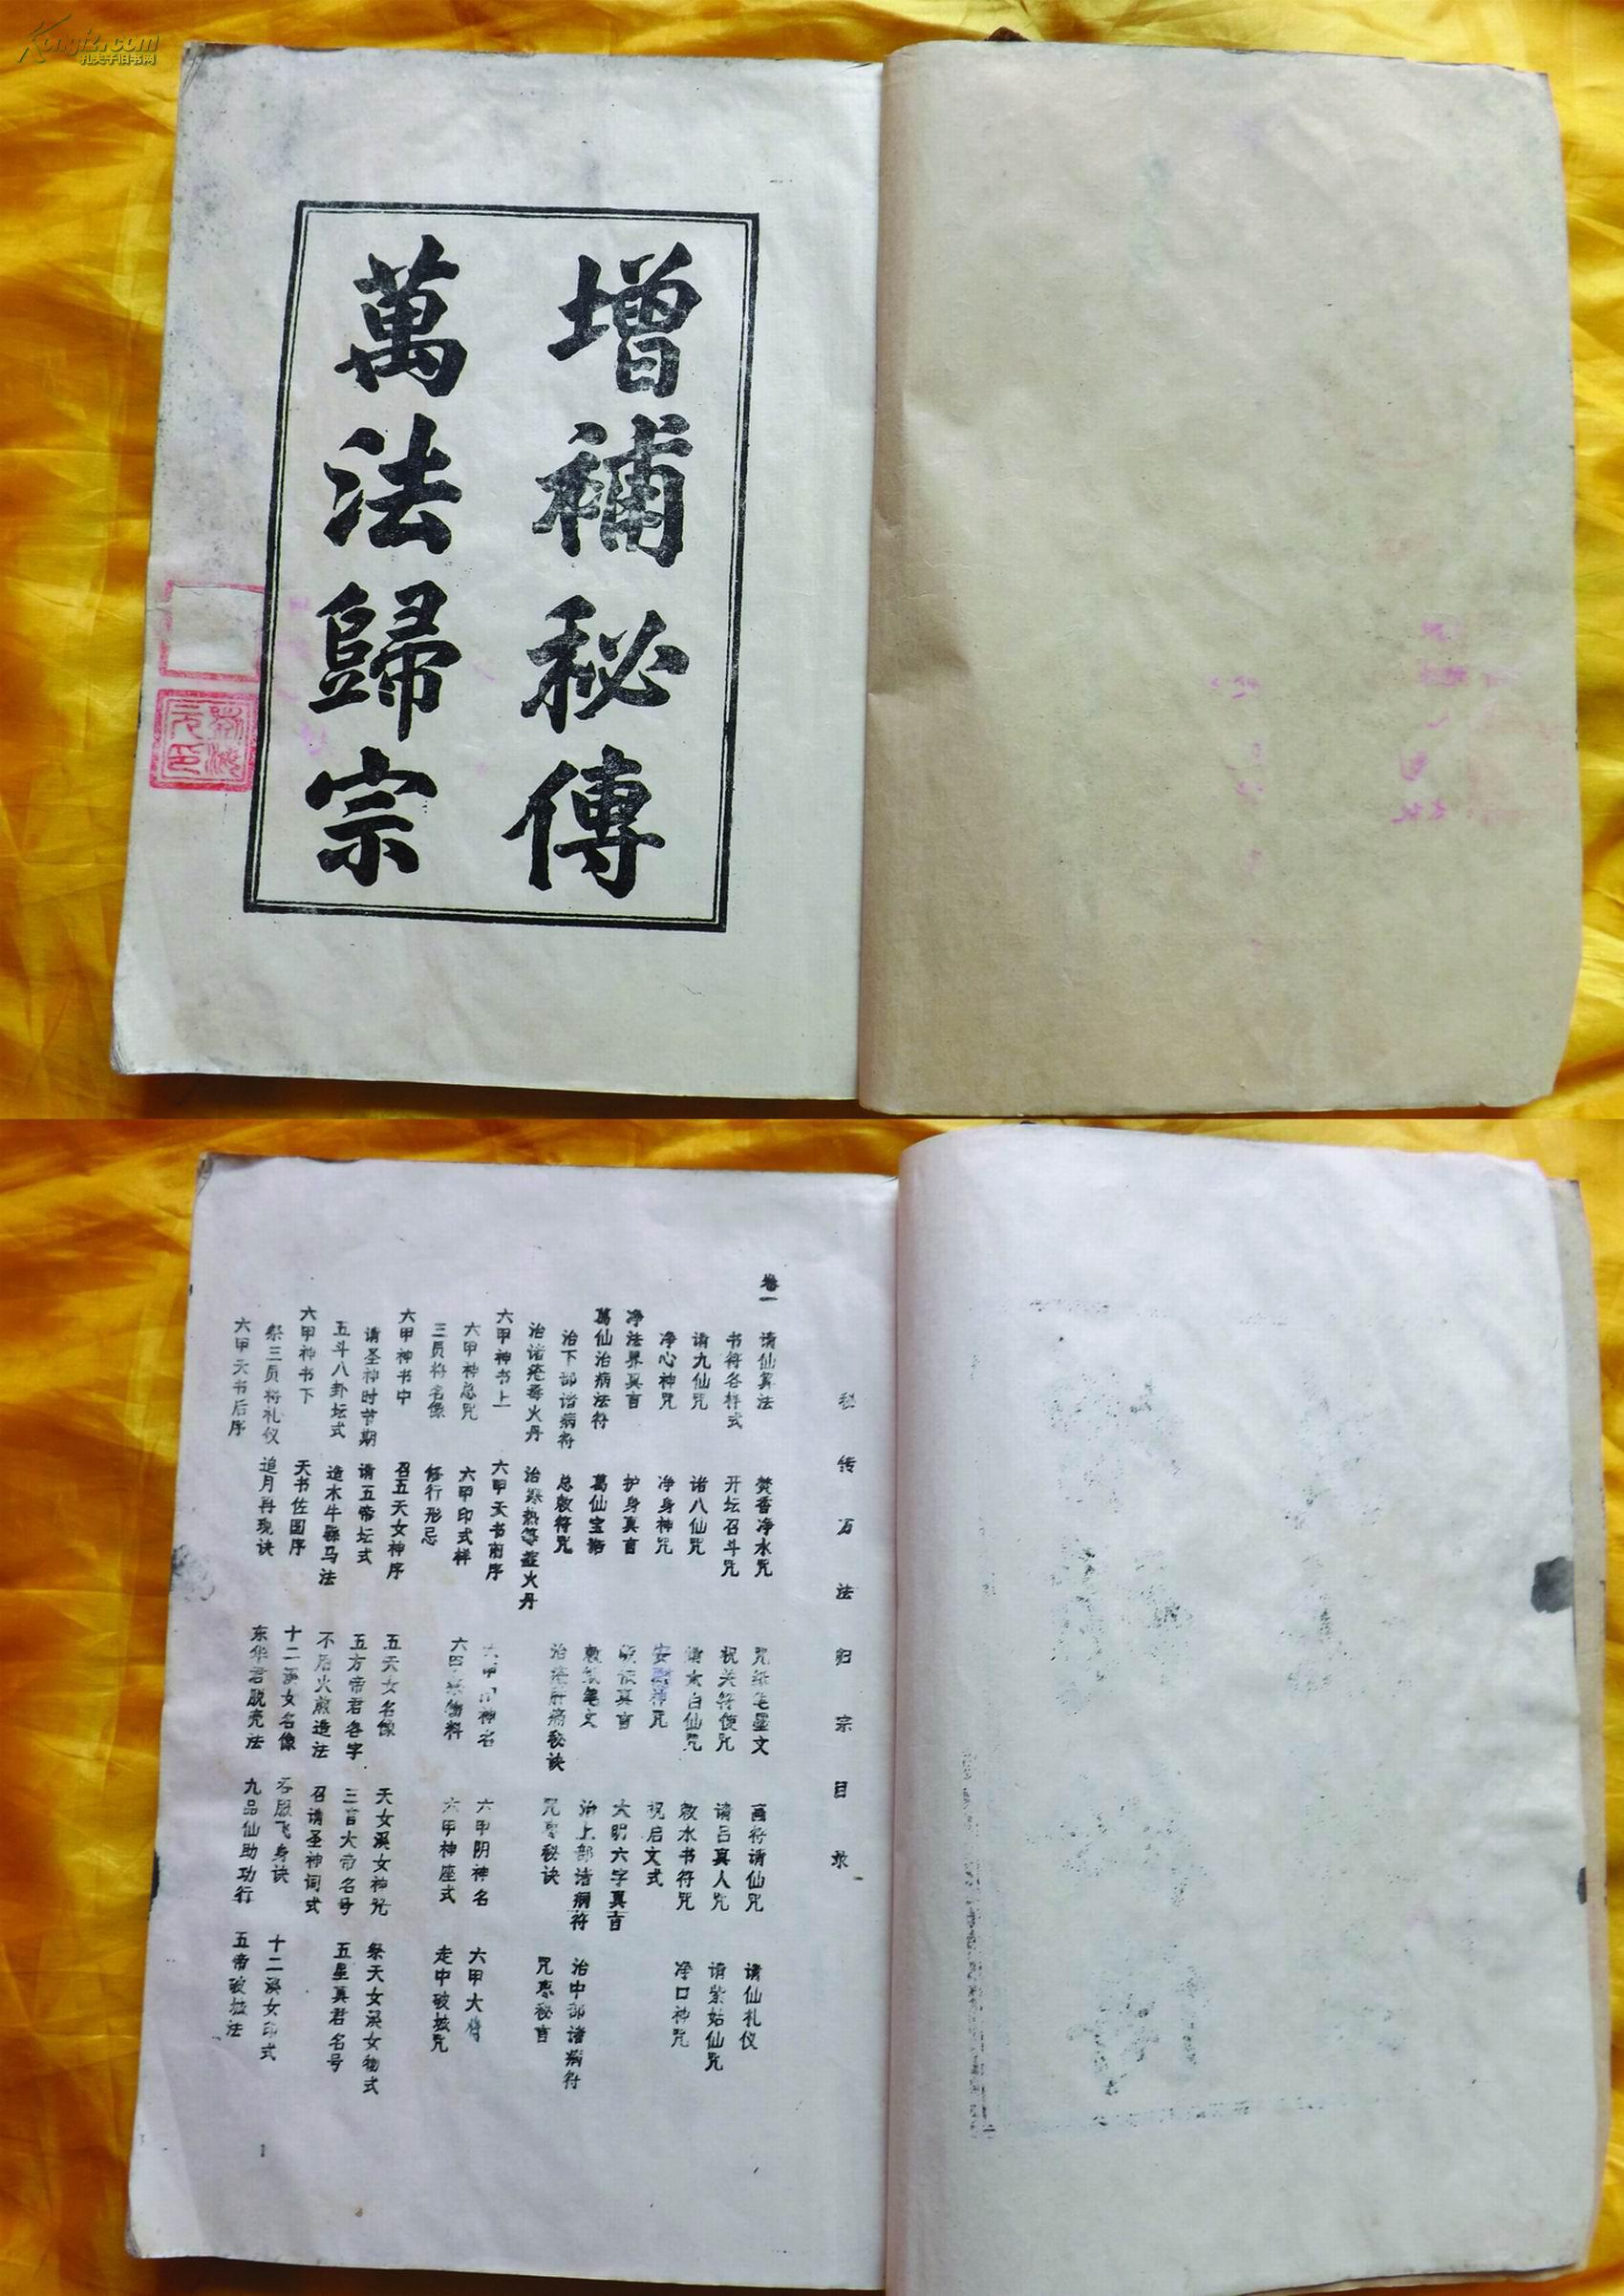 Kongfz.com
孔夫子旧书网
增補秘傳
萬法歸宗
秘传万法归宗目录
卷一
请仙算法 焚香净水咒 咒纸笔墨文 画符请仙咒 请仙礼仪
书符各样式 开坛召斗咒 祝关符使咒 请吕真人咒 请紫姑仙咒
请九仙咒 诸八仙咒 请太白仙咒 敕水书符咒 净口神咒
净心神咒 净身神咒 安神咒 祝启文式
净法界真言 护身真言 真言 大明六字真言
葛仙治病法符 葛仙宝诰 敕纸笔文 治上部诸病符 治中部诸病符
治下部诸病符 总敕符咒 治疮肿痛秘诀 咒枣秘诀 咒枣秘言
治诸疮毒火丹 治寒热等症火丹
六甲神书上 六甲天书前序 六甲阳神名 六甲阴神名 六甲大将
六甲神总咒 六甲印式样 六甲祭物料 六甲神座式 走中破妓咒
三员将名像 修行形忌
六甲神书中 召五天女神序 五天女名像 天女溪女神咒 祭天女溪女物式
请圣神时节期 请五帝坛式 五方帝君名字 三官大帝名号 五星真君名号
五斗八卦坛式 造木牛骡马法 不用火煎造法 召请圣神词式
六甲神书下 天书佐国序 十二溪女名像 吞服飞身诀 十二溪女印式
祭三员将礼仪 追月再现诀 东华君脱壳法 九品仙助功行 五帝破妓法
六甲天书后序
1